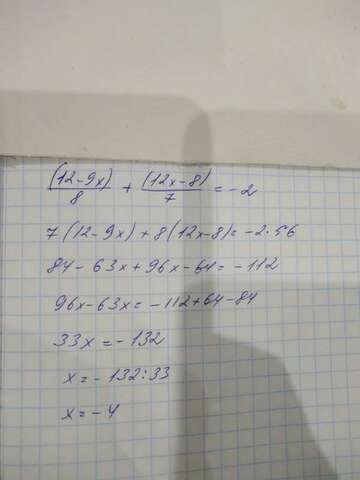 (12-9x)/8 + (12x-8)/7 = -2
7(12-9x)+8(12x-8)=-2·56
84-63x+96x-64=-112
96x-63x=-112+64-84
33x=-132
x=-132:33
x=-4